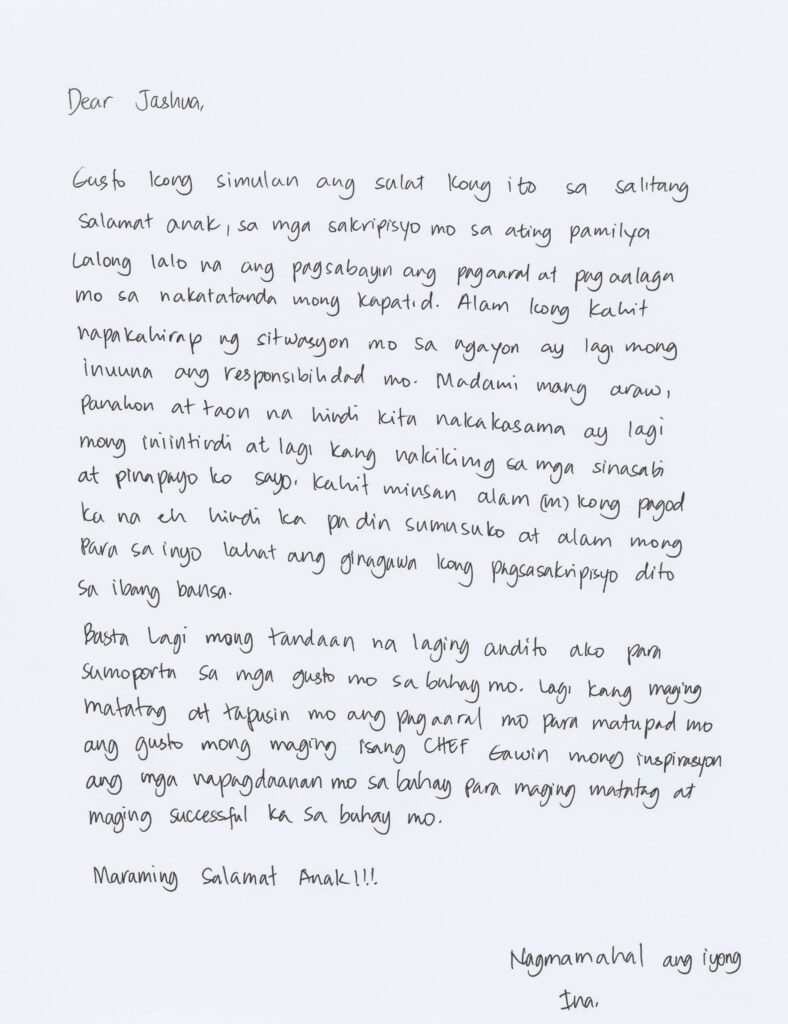 Dear Jashua,
Gusto kong simulan ang sulat kong ito sa salitang
salamat anak, sa mga sakripisyo mo sa ating pamilya
Lalong lalo na ang pagsabayin ang pagaaral at pag aalaga
mo sa nakatatanda mong kapatid. Alam kong kahit
napakahirap ng sitwasyon mo sa ngayon ay lagi mong
inuuna ang responsibilidad mo. Madami mang araw,
panahon at taon na hindi kita nakakasama ay lagi
mong iniintindi at lagi kang nakikinig sa mga sinasabi
at pinapayo ko sayo. Kahit minsan alam (m) kong pagod
ka na eh hindi ka pa din sumusuko at alam mong
Para sa inyo lahat ang ginagawa kong pagsasakripisyo dito
sa ibang bansa.
Basta lagi mong tandaan na laging andito ako para
sumoporta sa mga gusto mo sa buhay mo. Lagi kang maging
matatag at tapusin mo ang pagaaral mo para matupad mo
ang gusto mong maging isang CHEF Gawin mong inspirasyon
ang mga napagdaanan mo sa buhay para maging matatag at
maging successful ka sa buhay mo.
Maraming Salamat Anak!!!
Nagmamahal ang iyong
Ina.